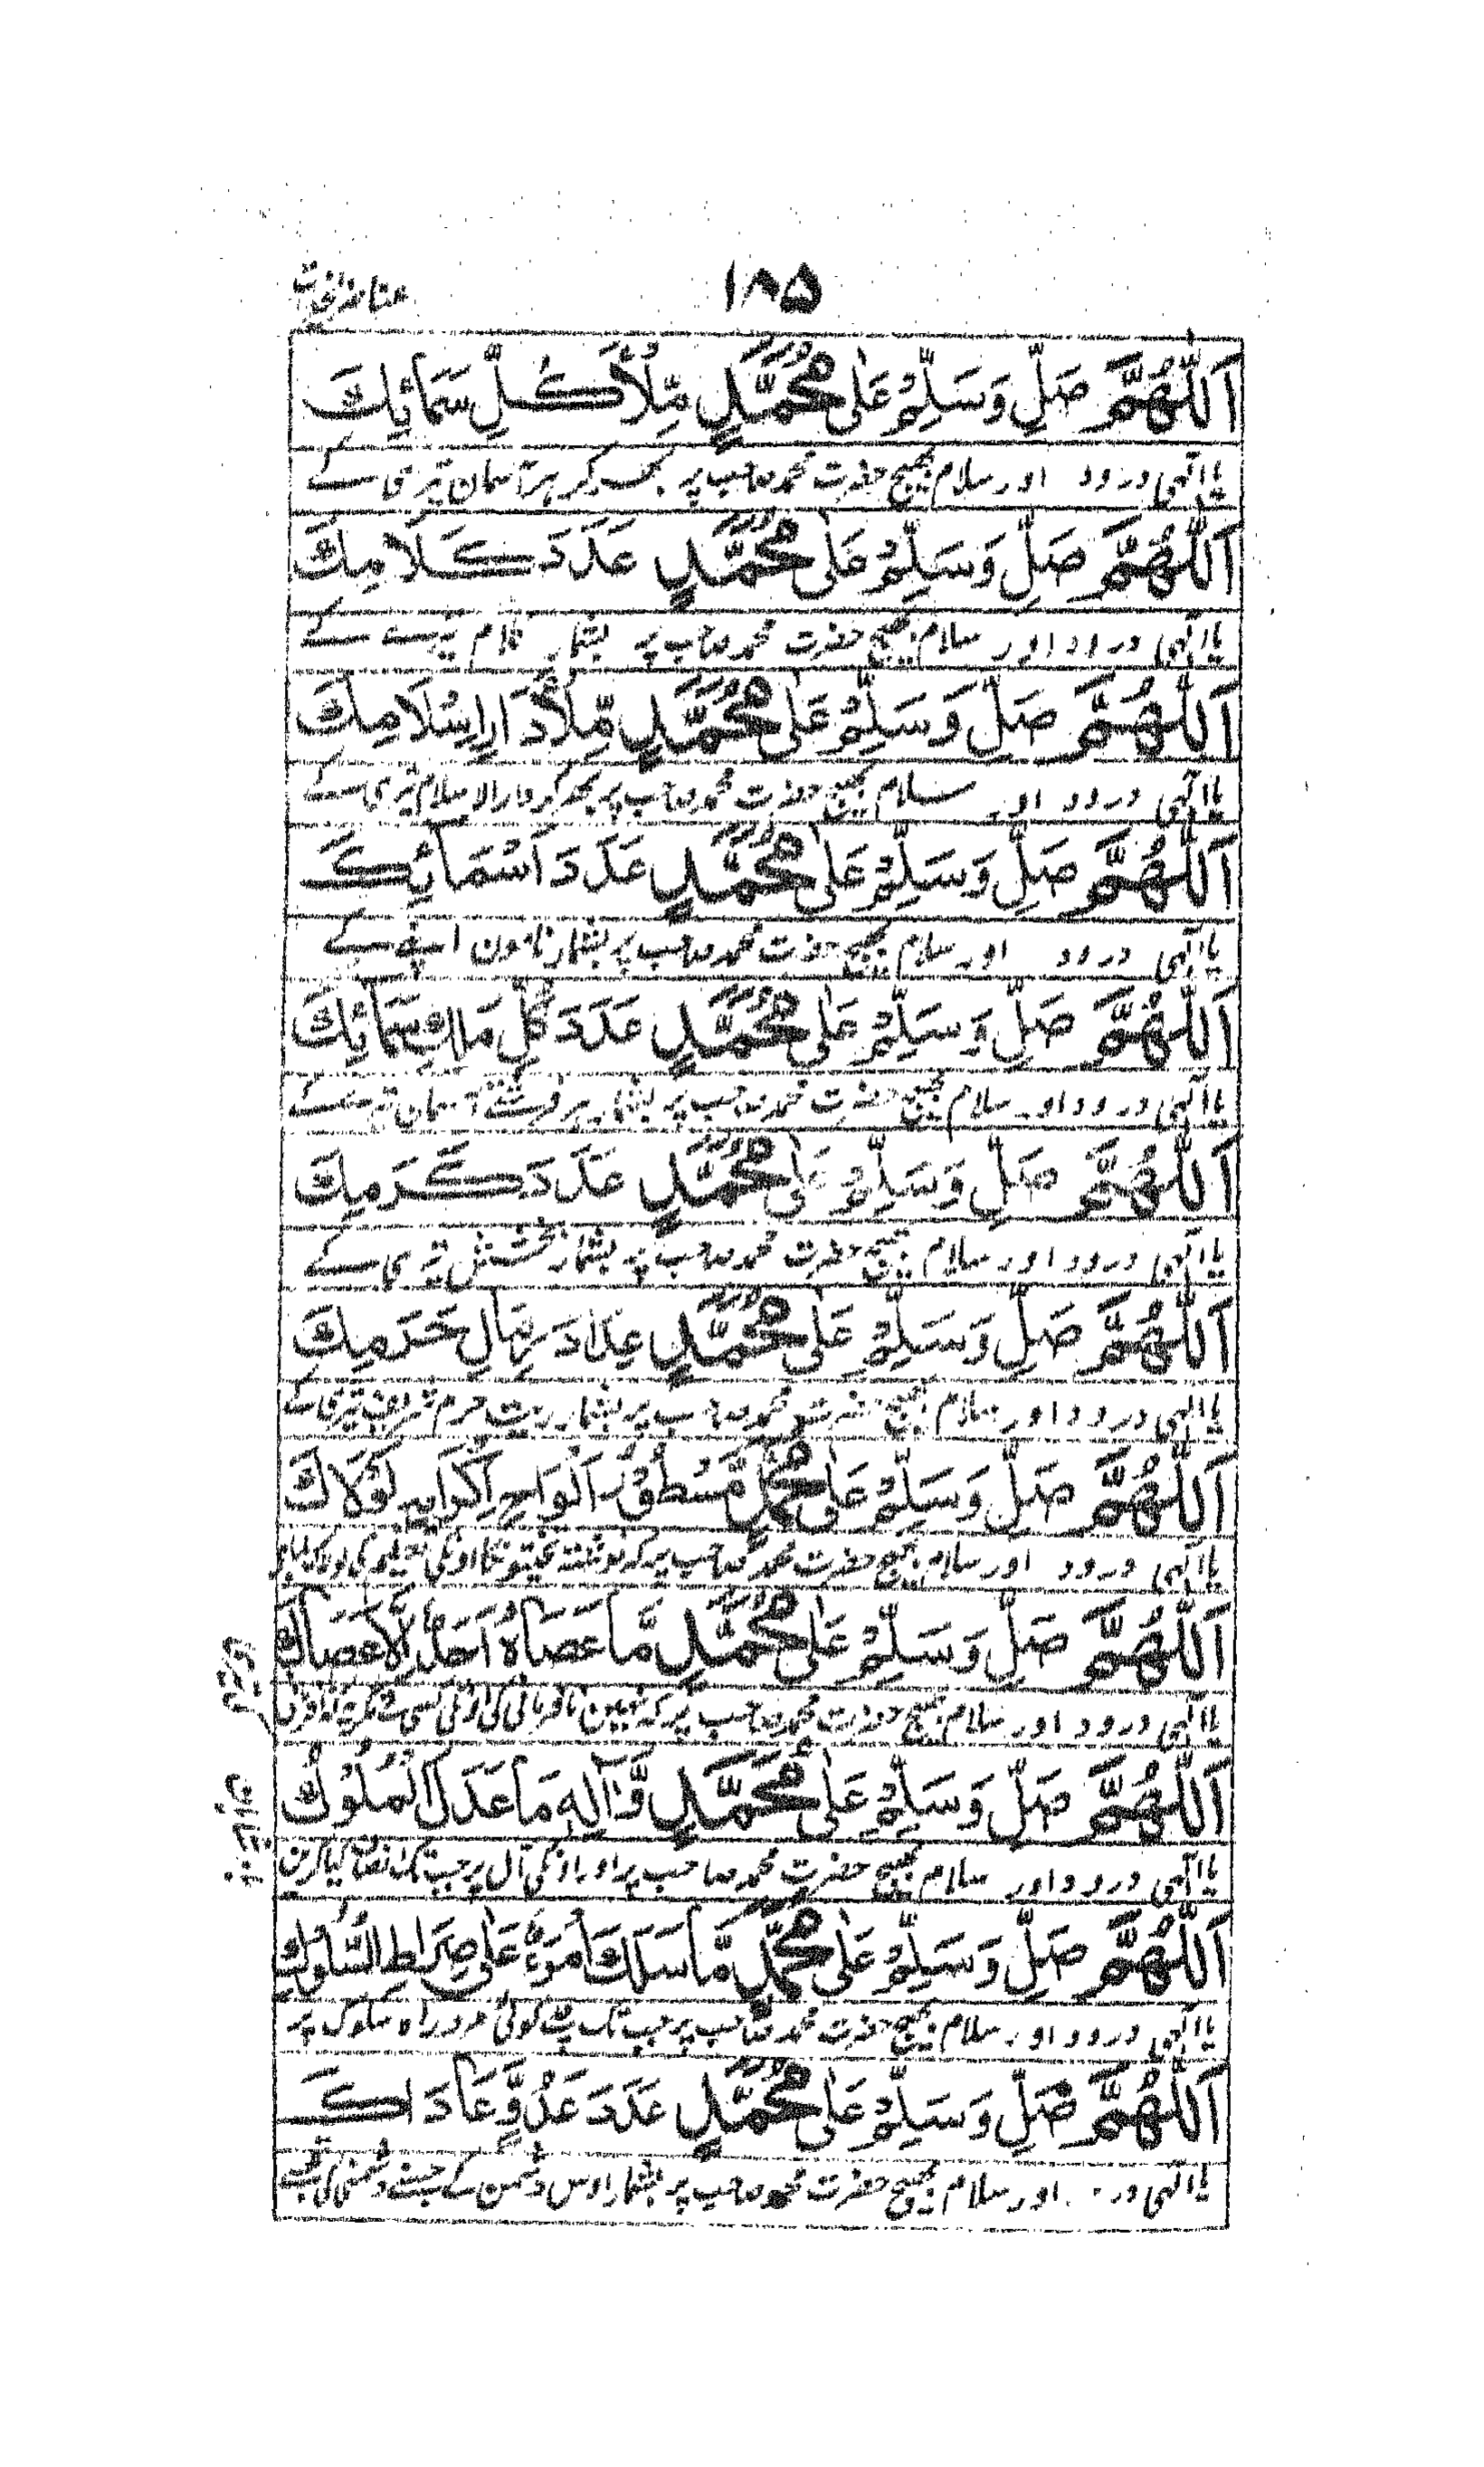 ۱۸۵
اَللّٰهُمَّ صَلِّ وَسَلِّمْ عَلٰی مُحَمَّدٍ مِّلْأَ كُلِّ سَمَائِكَ
یا الٰہی درود اور سلام بھیج حضرت محمد صاحب پر بھر کر ہر آسمان تیری کے
اَللّٰهُمَّ صَلِّ وَسَلِّمْ عَلٰی مُحَمَّدٍ عَدَدَ كَلَامِكَ
یا الٰہی درود اور سلام بھیج حضرت محمد صاحب پر بشمار کلام تیرے کے
اَللّٰهُمَّ صَلِّ وَسَلِّمْ عَلٰی مُحَمَّدٍ مِّلْأَ دَارِ اِسْلَامِكَ
یا الٰہی درود اور سلام بھیج حضرت محمد صاحب پر بھر کر دار الاسلام تیری کے
اَللّٰهُمَّ صَلِّ وَسَلِّمْ عَلٰی مُحَمَّدٍ عَدَدَ اَسْمَائِكَ
یا الٰہی درود اور سلام بھیج حضرت محمد صاحب پر بشمار نامون اپنے کے
اَللّٰهُمَّ صَلِّ وَسَلِّمْ عَلٰی مُحَمَّدٍ عَدَدَ كُلِّ مَلَكِ سَمَائِكَ
یا الٰہی درود اور سلام بھیج حضرت محمد صاحب پر بشمار ہر فرشتے آسمان تیرے کے
اَللّٰهُمَّ صَلِّ وَسَلِّمْ عَلٰی مُحَمَّدٍ عَدَدَ كَرَمِكَ
یا الٰہی درود اور سلام بھیج حضرت محمد صاحب پر بشمار بخشش تیری کے
اَللّٰهُمَّ صَلِّ وَسَلِّمْ عَلٰی مُحَمَّدٍ عِدَادَ رِمَالِ حَرَمِكَ
یا الٰہی درود اور سلام بھیج حضرت محمد صاحب پر بشمار ریت حرم شریف تیری کے
اَللّٰهُمَّ صَلِّ وَسَلِّمْ عَلٰی مُحَمَّدٍ اَلْوَاحِ لَوْلَاكَ
یا الٰہی درود اور سلام بھیج حضرت محمد صاحب پر کہ نوشتہ
اَللّٰهُمَّ صَلِّ وَسَلِّمْ عَلٰی مُحَمَّدٍ مَّا عَصَاهُ اَحَدٌ اِلَّا عَصَاكَ
یا الٰہی درود اور سلام بھیج حضرت محمد صاحب پر کہ نہین نافرمانی کی اونکی کسی نے
اَللّٰهُمَّ صَلِّ وَسَلِّمْ عَلٰی مُحَمَّدٍ وَّاٰلِهٖ مَا عَدَلَ الْمُلُوْكُ
یا الٰہی درود اور سلام بھیج حضرت محمد صاحب پر اور اونکی آل پر جب تک انصاف کیا کرین
اَللّٰهُمَّ صَلِّ وَسَلِّمْ عَلٰی مُحَمَّدٍ مَّا سَلَكَ امْرَءٌ عَلٰی صِرَاطِ السُّلُوْكِ
یا الٰہی درود اور سلام بھیج حضرت محمد صاحب پر جب تک چلے کوئی مرد راہ سلوک پر
اَللّٰهُمَّ صَلِّ وَسَلِّمْ عَلٰی مُحَمَّدٍ عَدَدَ عَدُوٍّ عَادَاكَ
یا الٰہی در اور سلام بھیج حضرت محمد صاحب پر بشمار اوس دشمن کے جسنے دشمنی کی